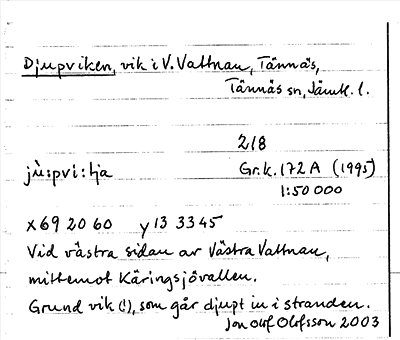 Djupviken, vik i V. Vattnau, Tännäs,
Tännäs sn, Jämtl. l.
218
jù:spvi:tja Gr.k. 172 A (1995)
1:50 000
x 69 20 60 y 13 33 45
Vid västra sidan av Västra Vattnau,
mittemot Käringsjövallen.
Grund vik (!), som går djupt in i stranden.
Jon Olof Olofsson 2003